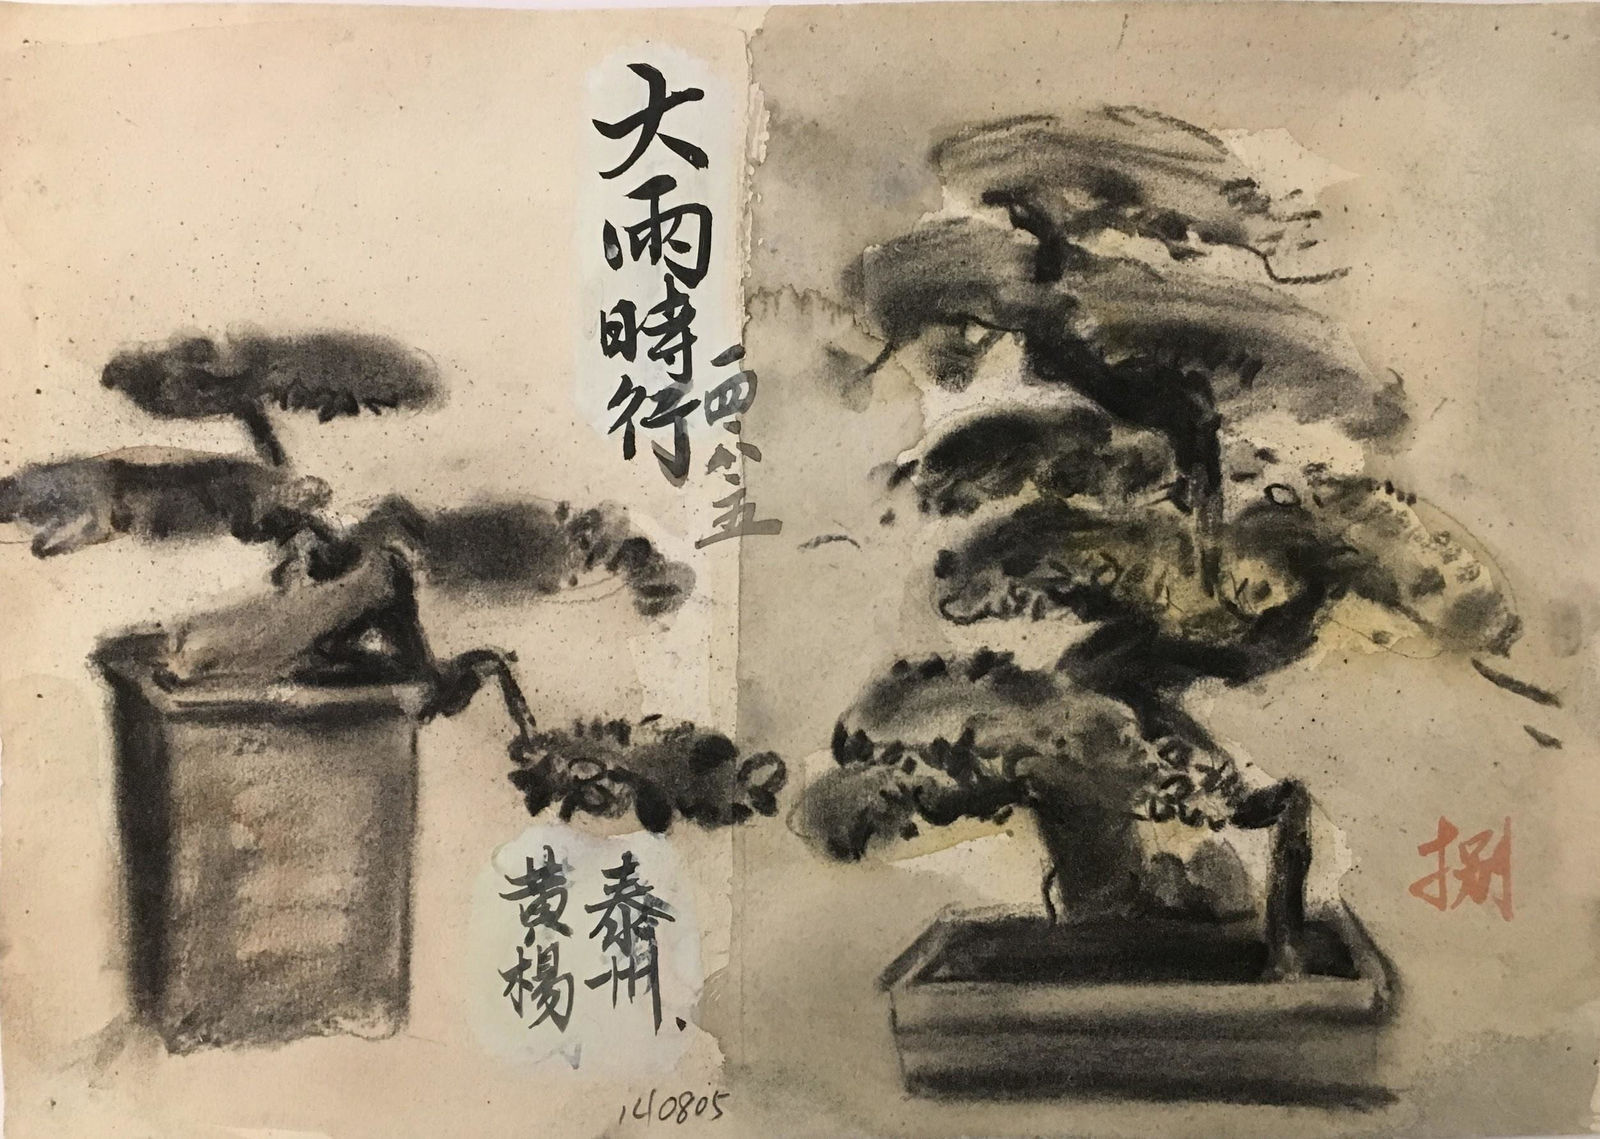 大雨時行
一四.八.五
泰州
黄楊
140805
捌